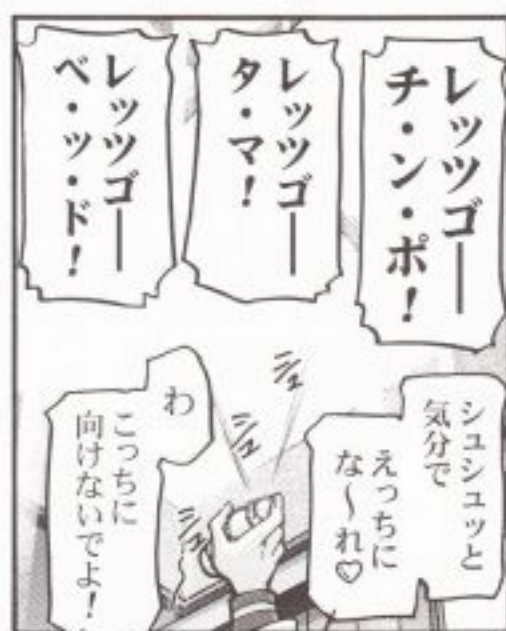 レッツゴー
チ・ン・ポ！
レッツゴー
タ・マ！
レッツゴー
ベ・ッ・ド！
シュシュッと
気分で
えっちに
な〜れ♡
シュ
シュ
シュ
わ
こっちに
向けないでよ！